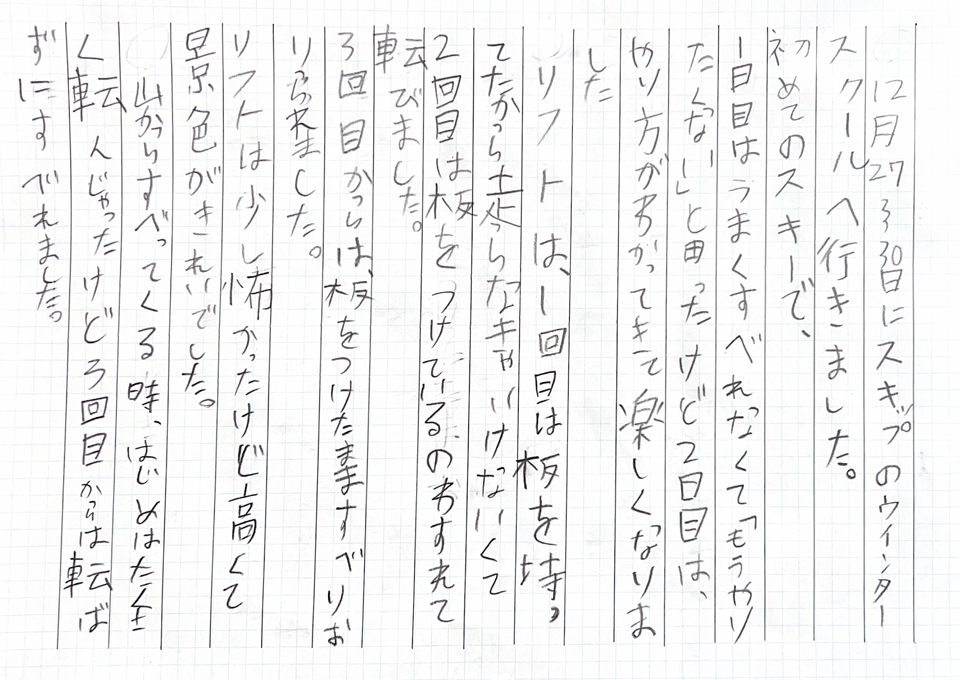 12月27～30日にスキップのウィンター
スクールへ行きました。
初めてのスキーで、
一日目はうまくすべれなくて「もうやり
たくない」と思ったけど2日目は、
やり方がわかってきて楽しくなりま
した
リフトは、1回目は板を持っ
てたから走らなきゃいけないくて
2回目は板をつけているのわすれて
転びました。
3回目からは、板をつけたまますべりお
りられました。
リフトは少し怖かったけど高くて
景色がきれいでした。
山からすべってくる時、はじめはたくさ
く転んじゃったけど3回目からは転ば
ずにすべれました。